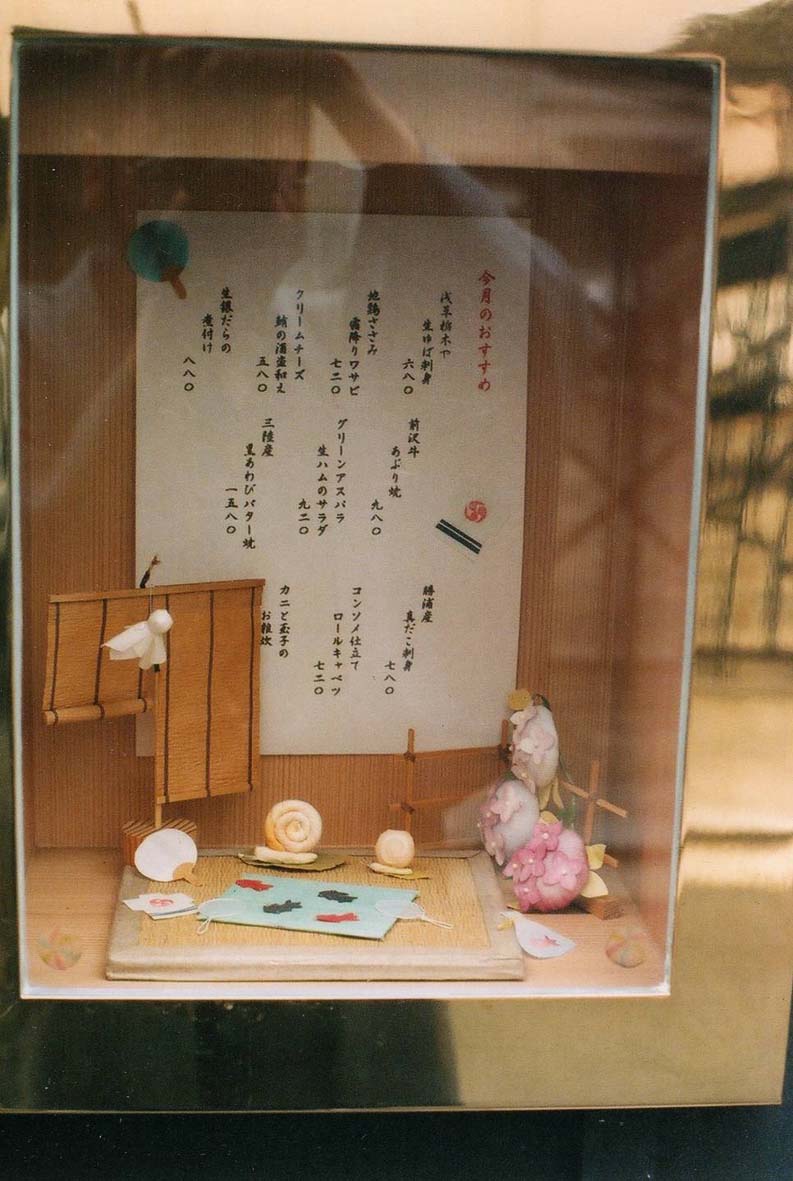 今月のおすすめ
浅草栃木や
生ゆば刺身
六八〇
地鶏ささみ
霜降りワサビ
七二〇
クリームチーズ
鮪の酒盗和え
五八〇
生銀だらの
煮付け
八八〇
前沢牛
あぶり焼
九八〇
グリーンアスパラ
生ハムのサラダ
九二〇
三陸産
黒あわびバター焼
一五八〇
勝浦産
真だこ刺身
七八〇
コンソメ仕立て
ロールキャベツ
七二〇
カニと玉子の
お雑炊